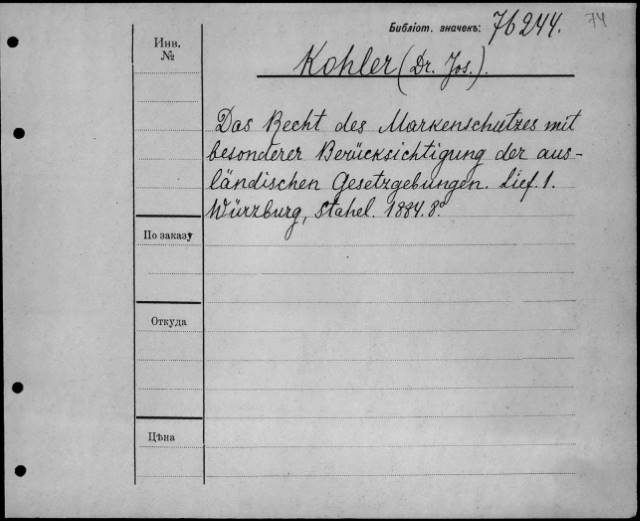 Библіот. значекъ: 76244. 74
Инв.
№
Kohler (Dr. Jos.).
Das Recht des Markenschutzes mit
besonderer Berücksichtigung der aus-
ländischen Gesetzgebungen. Lief. 1.
Würzburg, Stahel. 1884. 8°
По заказу
Откуда
Цѣна